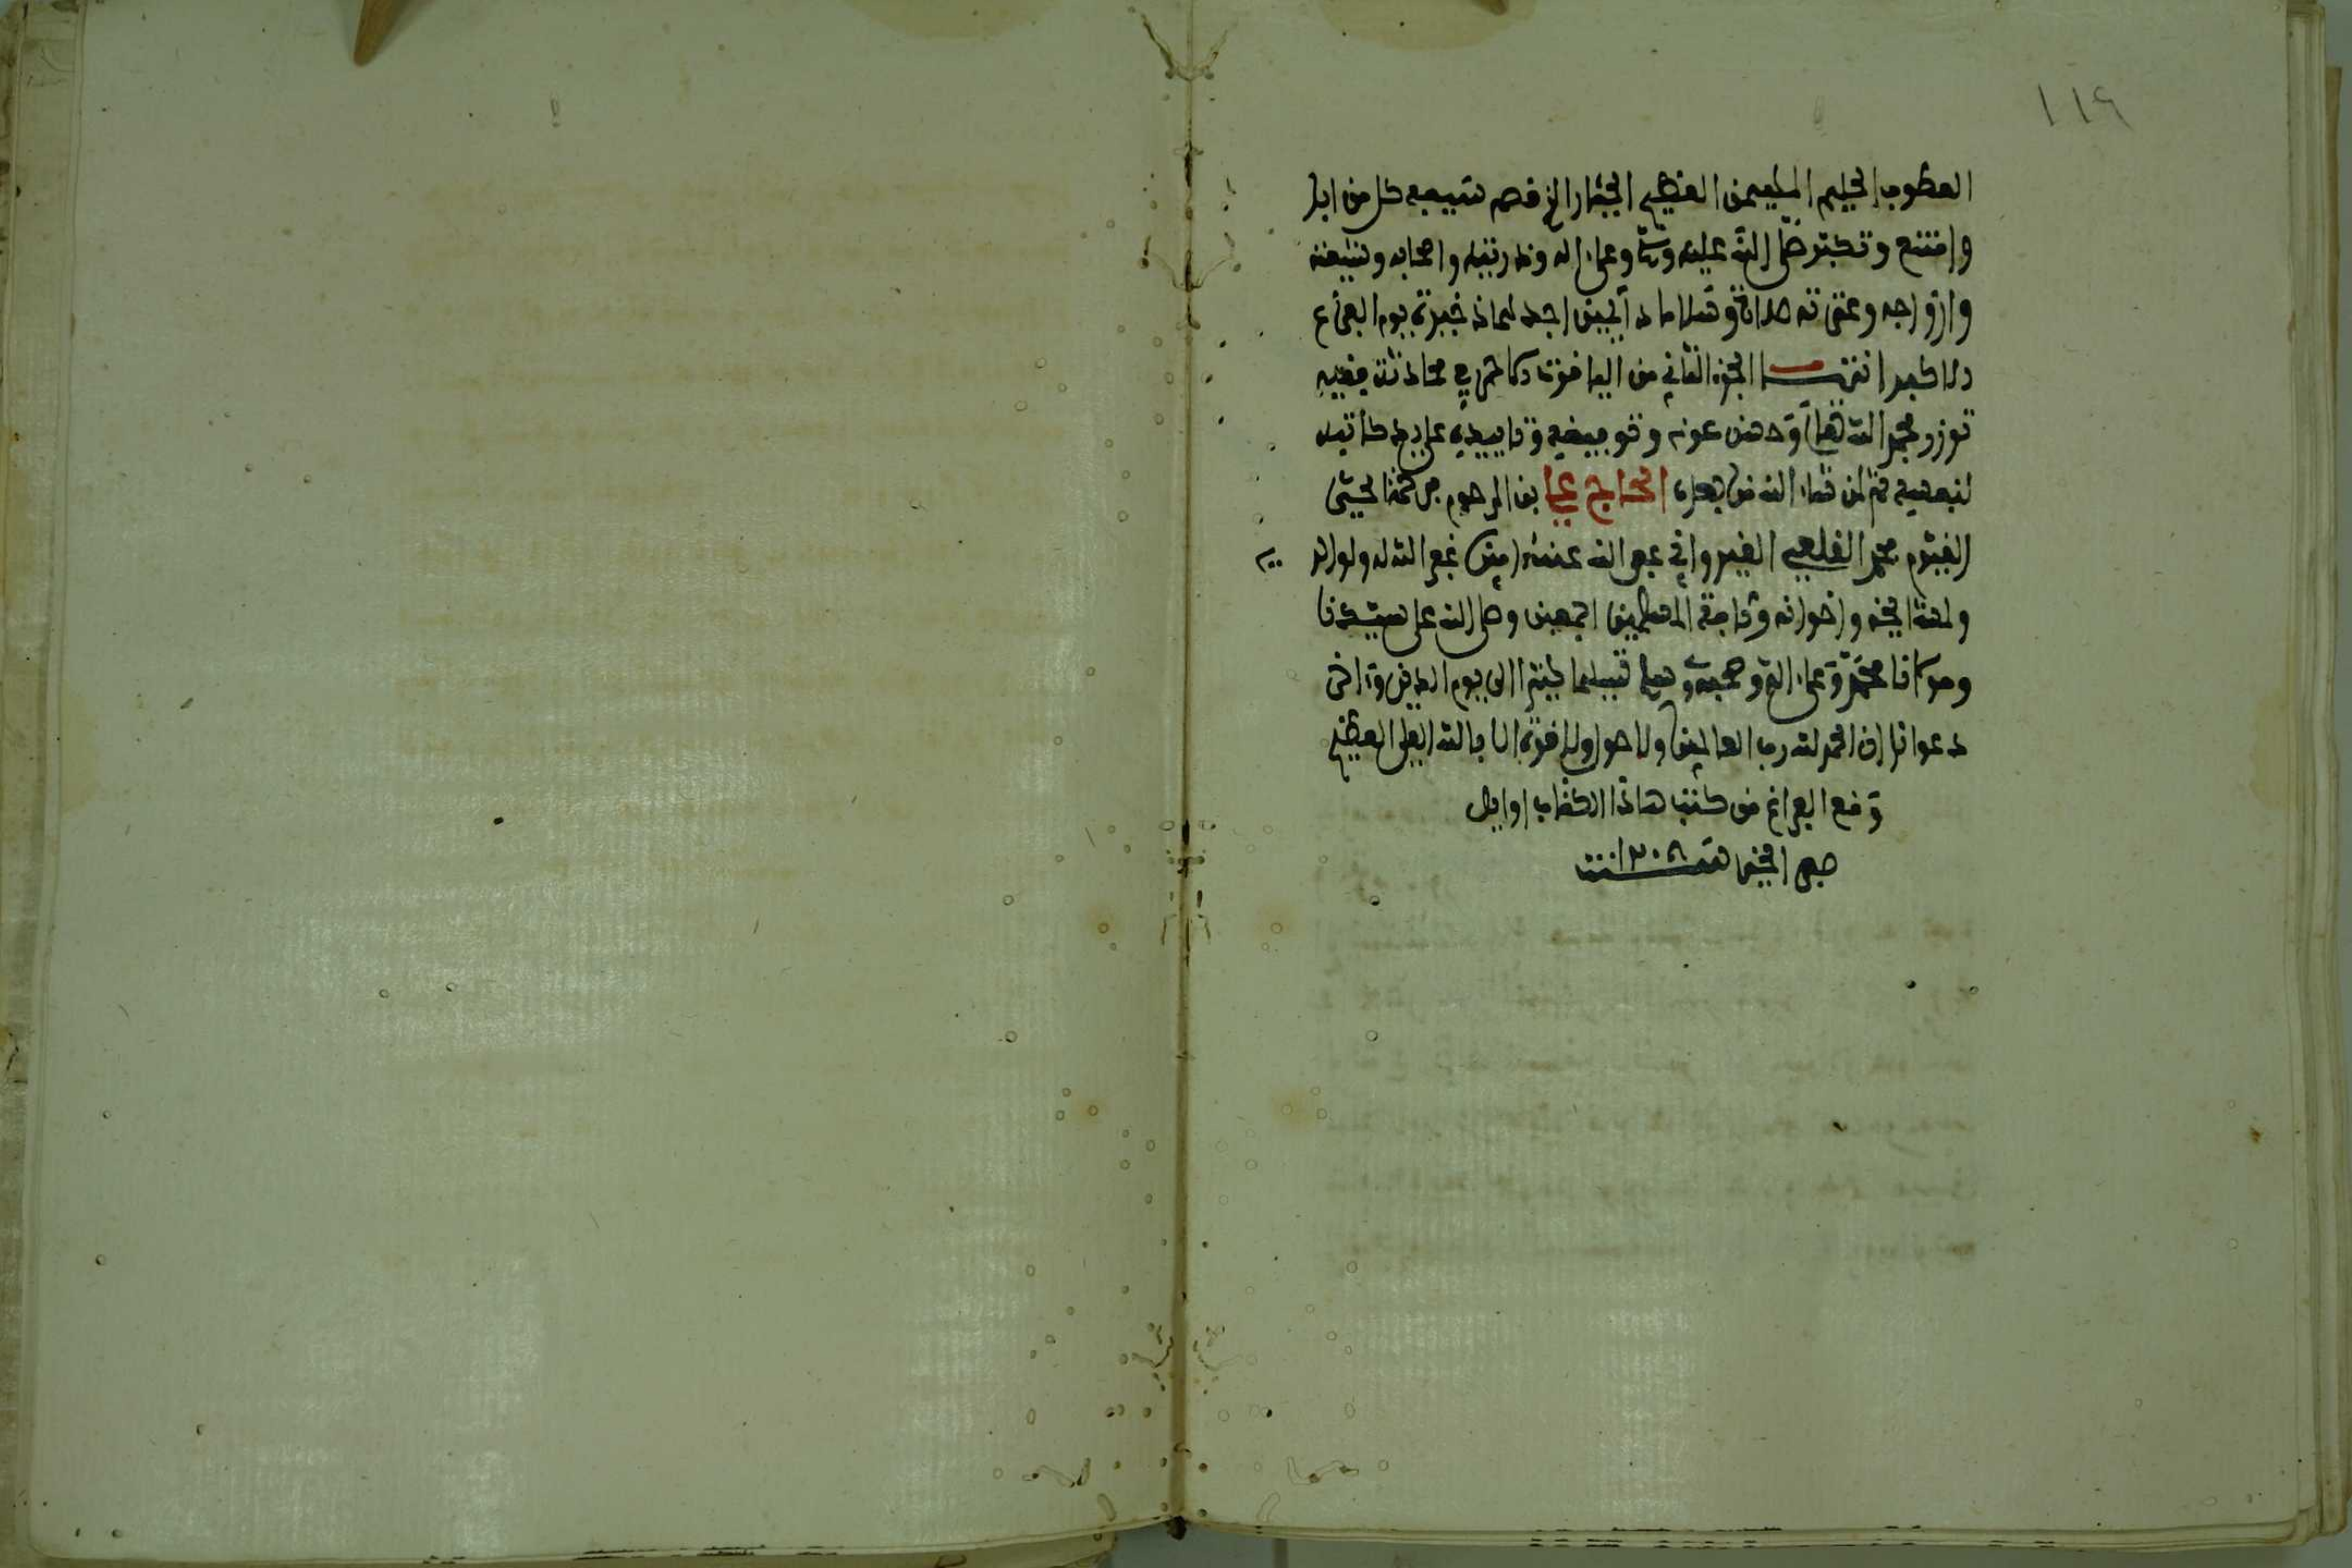 ١١٩
العطوف الحليم المهيمن العظيم الجبار الذي قصم بسيفه كل من ابا
وامتنع وتكبر صلى الله عليه وسلم وعلى اله وذريته واصحابه وشيعته
وازواجه وعترته صلاة وسلاما دآيمين اجدهما ذخيرة يوم الفزع
الاكبر انتهـى الجزء الثاني من
بحمد الله تعالى وحسن عونه وتوفيقه وتاييده على يد كاتبه
لنفسه ثم لمن شاء الله من بعده الحاج علي بن المرحوم
محمد القلعي القيرواني عفى الله عنه امين غفر الله له ولوالديه
واخوانه وكافة المسلمين اجمعين وصلى الله على سيدنا
ومولانا محمد وعلى اله وصحبه وسلم تسليما كثيرا الى يوم الدين وءاخر
دعوانا ان الحمد لله رب العالمين ولا حول ولا قوة الا بالله العلي العظيم
وقع الفراغ من كتب هاذا الكتاب اوايل
صفر الخير سنـة